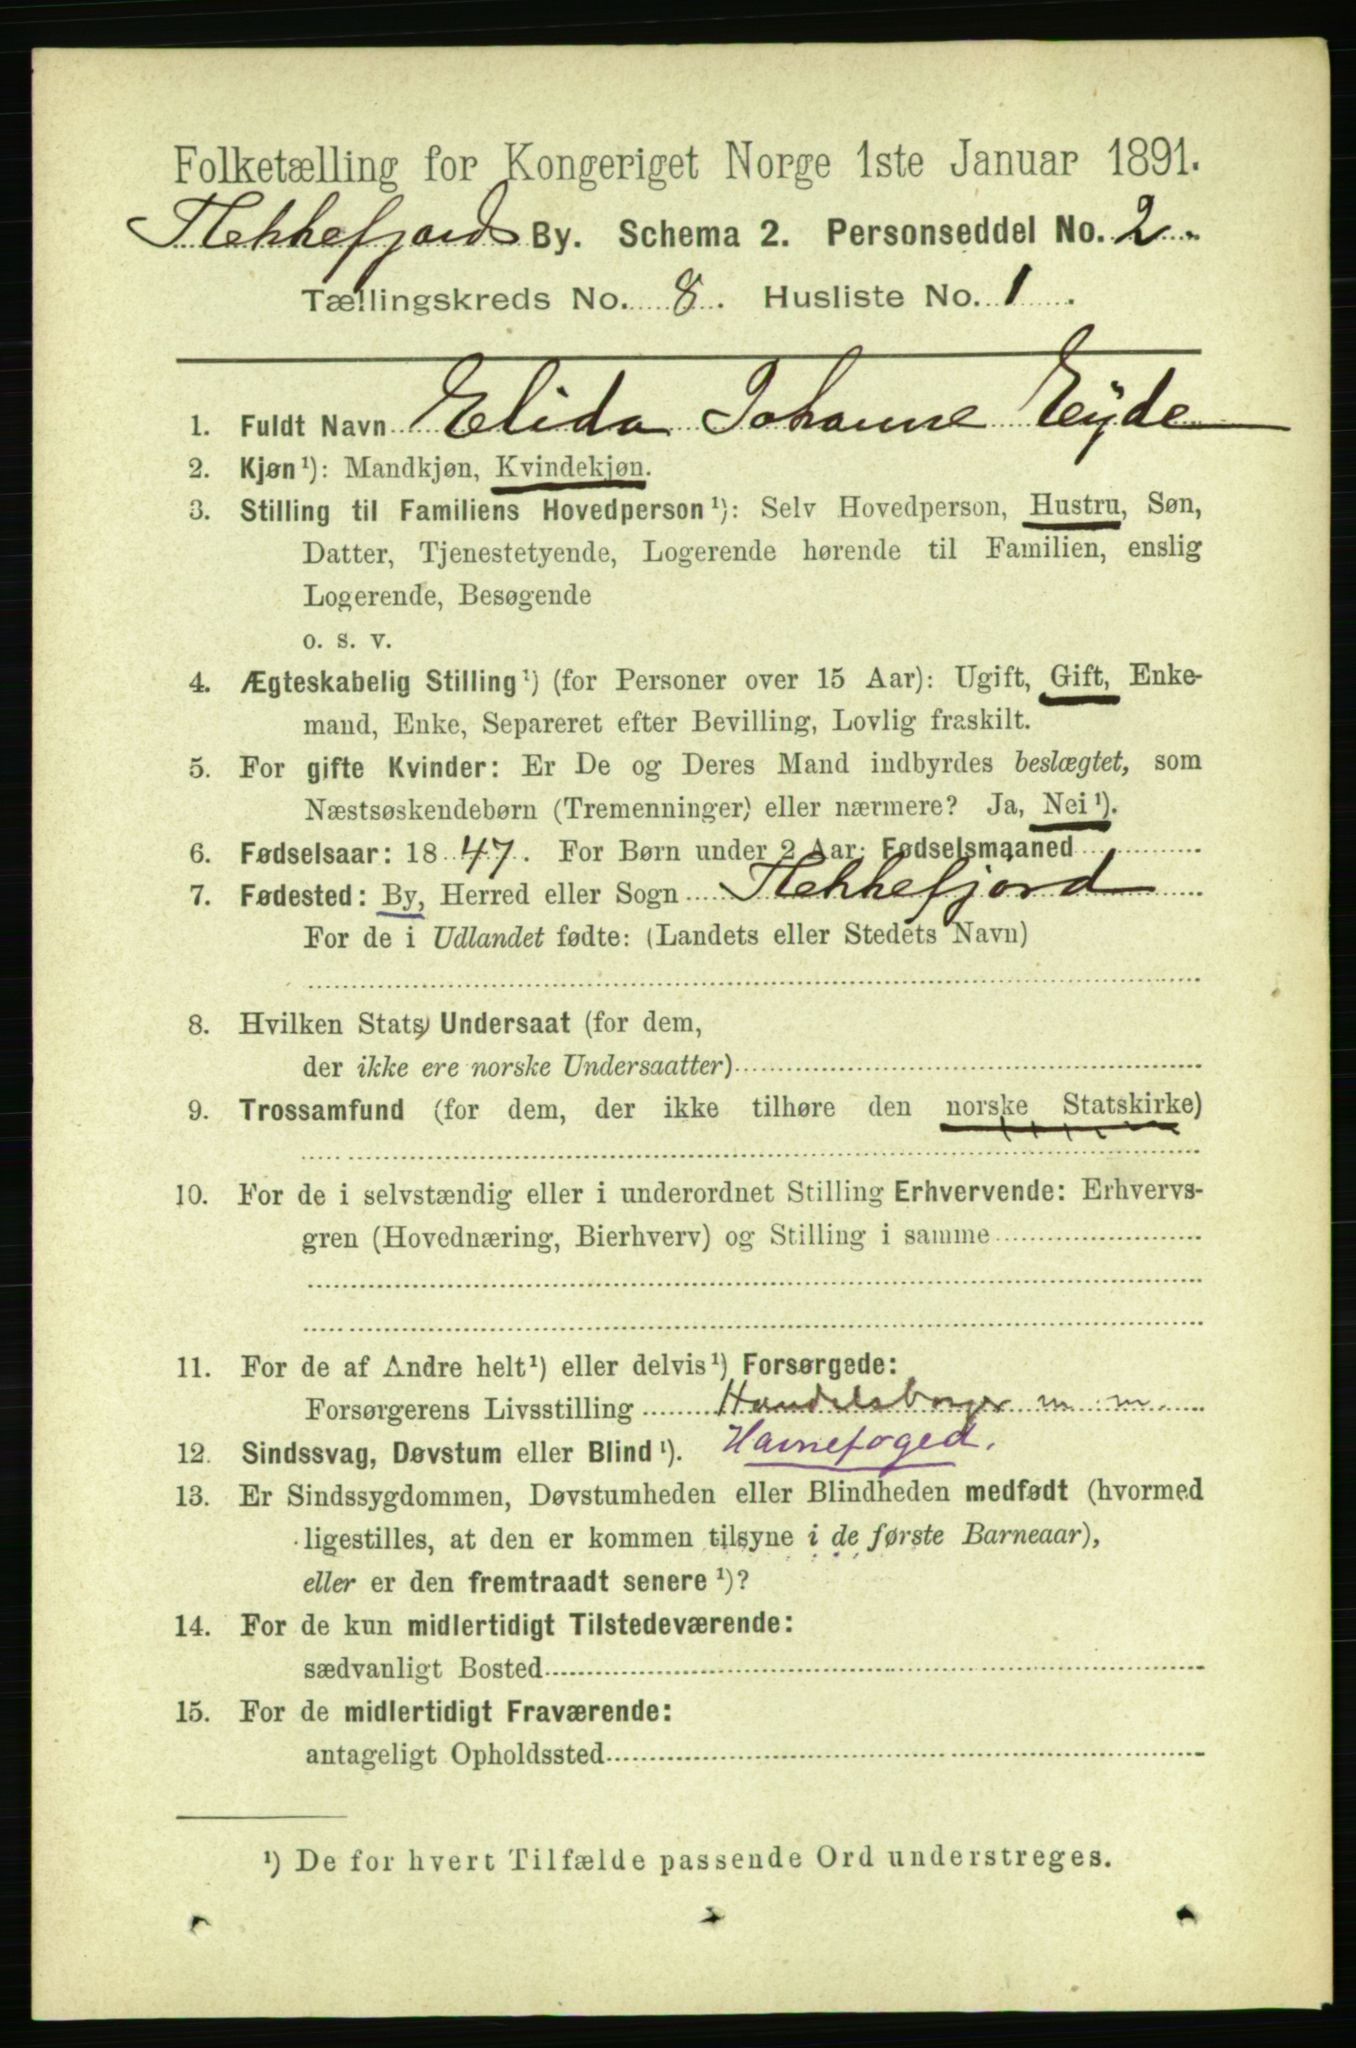 Folketælling for Kongeriget Norge 1ste Januar 1891.
Flekkefjords By. Schema 2. Personseddel No. 2.
Tællingskreds No. 8. Husliste No. 1.
1. Fuldt Navn Elida Johanne Eyde
2. Kjøn ¹): Mandkjøn, Kvindekjøn.
3. Stilling til Familiens Hovedperson ¹): Selv Hovedperson, Hustru, Søn,
Datter, Tjenestetyende, Logerende hørende til Familien, enslig
Logerende, Besøgende
o. s. v.
4. Ægteskabelig Stilling ¹) (for Personer over 15 Aar): Ugift, Gift, Enke-
mand, Enke, Separeret efter Bevilling, Lovlig fraskilt.
5. For gifte Kvinder: Er De og Deres Mand indbyrdes beslægtet, som
Næstsøskendebørn (Tremenninger) eller nærmere? Ja, Nei ¹).
6. Fødselsaar: 1847. For Børn under 2 Aar: Fødselsmaaned
7. Fødested: By, Herred eller Sogn Flekkefjord
For de i Udlandet fødte: (Landets eller Stedets Navn)
8. Hvilken Stats Undersaat (for dem,
der ikke ere norske Undersaatter)
9. Trossamfund (for dem, der ikke tilhøre den norske Statskirke)
10. For de i selvstændig eller i underordnet Stilling Erhvervende: Erhvervs-
gren (Hovednæring, Bierhverv) og Stilling i samme
11. For de af Andre helt ¹) eller delvis ¹) Forsørgede:
Forsørgerens Livsstilling Handelsborger m. m.
12. Sindssvag, Døvstum eller Blind ¹). Havnefoged.
13. Er Sindssygdommen, Døvstumheden eller Blindheden medfødt (hvormed
ligestilles, at den er kommen tilsyne i de første Barneaar),
eller er den fremtraadt senere ¹)?
14. For de kun midlertidigt Tilstedeværende:
sædvanligt Bosted
15. For de midlertidigt Fraværende:
antageligt Opholdssted
¹) De for hvert Tilfælde passende Ord understreges.